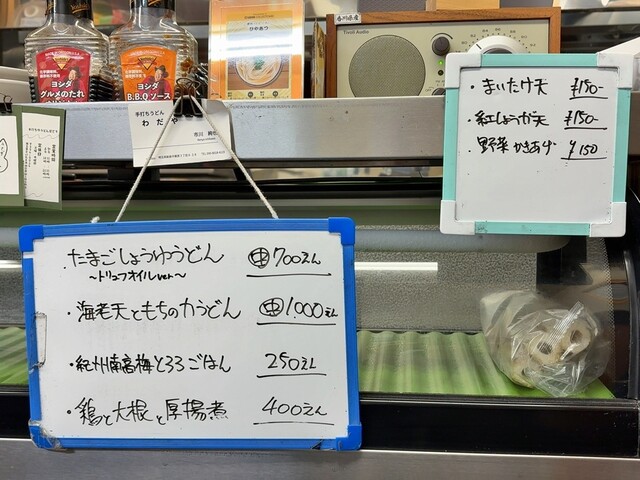 ヨシダ
グルメのたれ
ヨシダ
B.B.Qソース
ひやあつ
香川県産
Tivoli Audio
手打ちうどん
わだや
市川
・まいたけ天 ¥150-
・紅しょうが天 ¥150-
野菜かきあげ ¥150
・たまごしょうゆうどん ㊥700えん
～トリュフオイルver～
・海老天ともちの力うどん ㊥1000えん
・紀州南高梅とろろごはん 250えん
・鶏と大根と厚揚煮 400えん